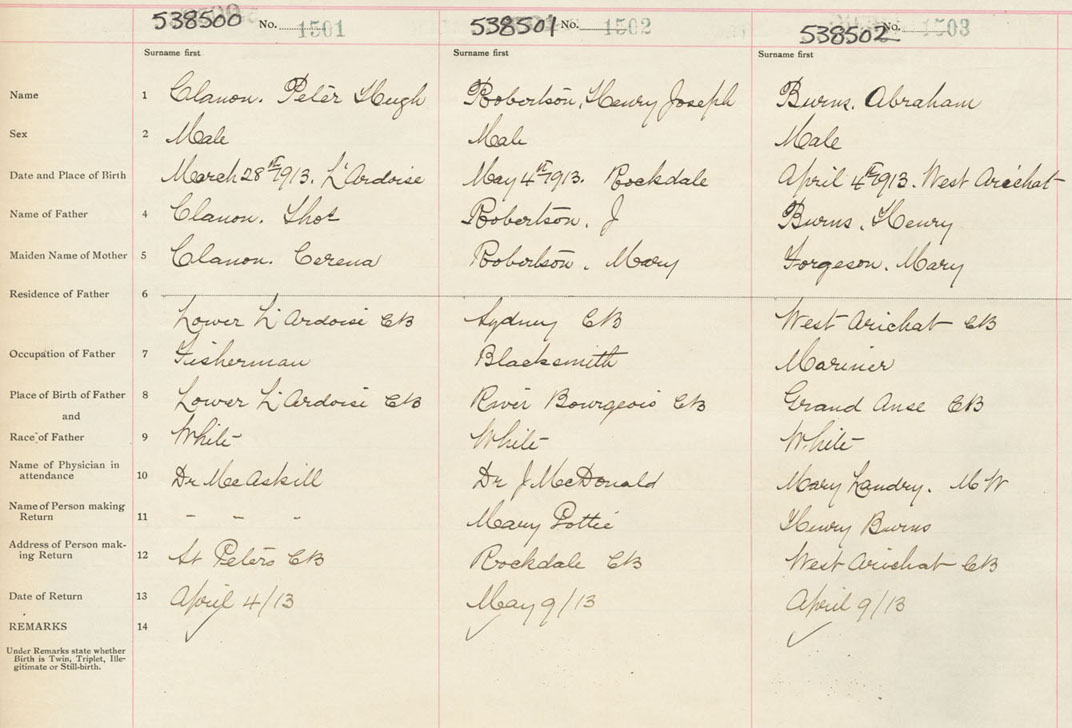 538500 No. 1501 538501 No. 1502 538502 No. 1503
Surname first Surname first Surname first
Name 1 Clanon. Peter Hugh Robertson, Henry Joseph Burns. Abraham
Sex 2 Male Male Male
Date and Place of Birth 3 March 28th 1913. L'Ardoise May 4th 1913. Rockdale April 4th 1913. West Arichat
Name of Father 4 Clanon. Thos Robertson. J Burns, Henry
Maiden Name of Mother 5 Clanon. Cerena Robertson. Mary Forgeson. Mary
Residence of Father 6
Lower L'Ardoise CB Sydney CB West Arichat CB
Occupation of Father 7 Fisherman Blacksmith Mariner
Place of Birth of Father 8 Lower L'Ardoise CB River Bourgeois CB Grand Anse CB
and
Race of Father 9 White White White
Name of Physician in
attendance 10 Dr McAskill Dr J McDonald Mary Landry. MW
Name of Person making
Return 11 - - - Mary Pottie Henry Burns
Address of Person mak-
ing Return 12 St Peters CB Rockdale CB West Arichat CB
Date of Return 13 April 4/13 May 9/13 April 9/13
REMARKS 14
Under Remarks state whether
Birth is Twin, Triplet, Ille-
gitimate or Still-birth.